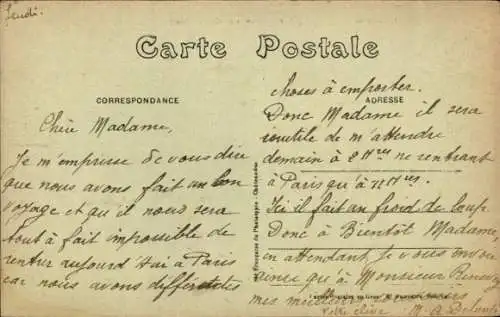 Jeudi.
Carte Postale
CORRESPONDANCE
Chère Madame,
Je m'empresse de vous dire
que nous avons fait un bon
voyage et qu'il nous sera
tout à fait impossible de
rentrer aujourd'hui à Paris
car nous avons différentes
ADRESSE
choses à emporter.
Donc Madame il sera
inutile de m'attendre
demain à 8 Hres ne rentrant
à Paris qu'à 11 Hres.
Ici il fait un froid de loup
Donc à Bientôt Madame
en attendant Je vous envoie
ainsi qu'à Monsieur
mes meilleurs
Votre élève